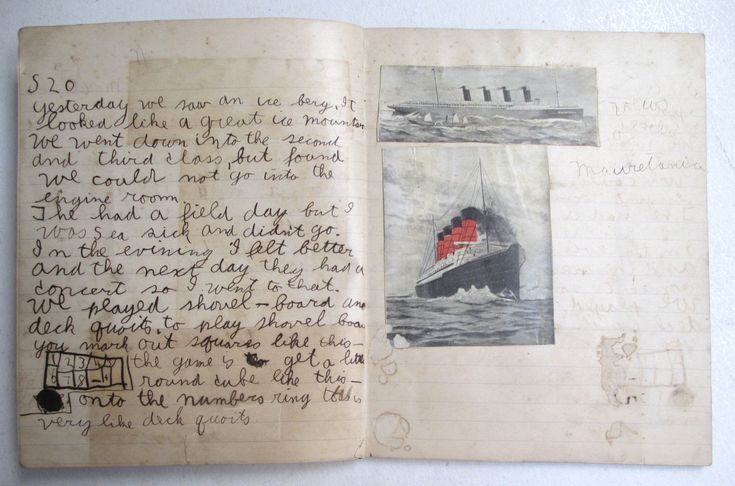 S 20
yesterday we saw an ice berg. It
looked like a great ice mountain
We went down into the second
and third class, but found
we could not go into the
engine room
The had a field day but I
was sea sick and didn't go.
In the evining I felt better
and the next day they had a
concert so I went to that.
We played shovel-board and
deck quoits. to play shovel boad
you mark out squares like this-
1 2 3 4 5 the game is to get a little
6 7 8 round cube like this-
onto the numbers ring toss is
very like deck quoits
Mauretania